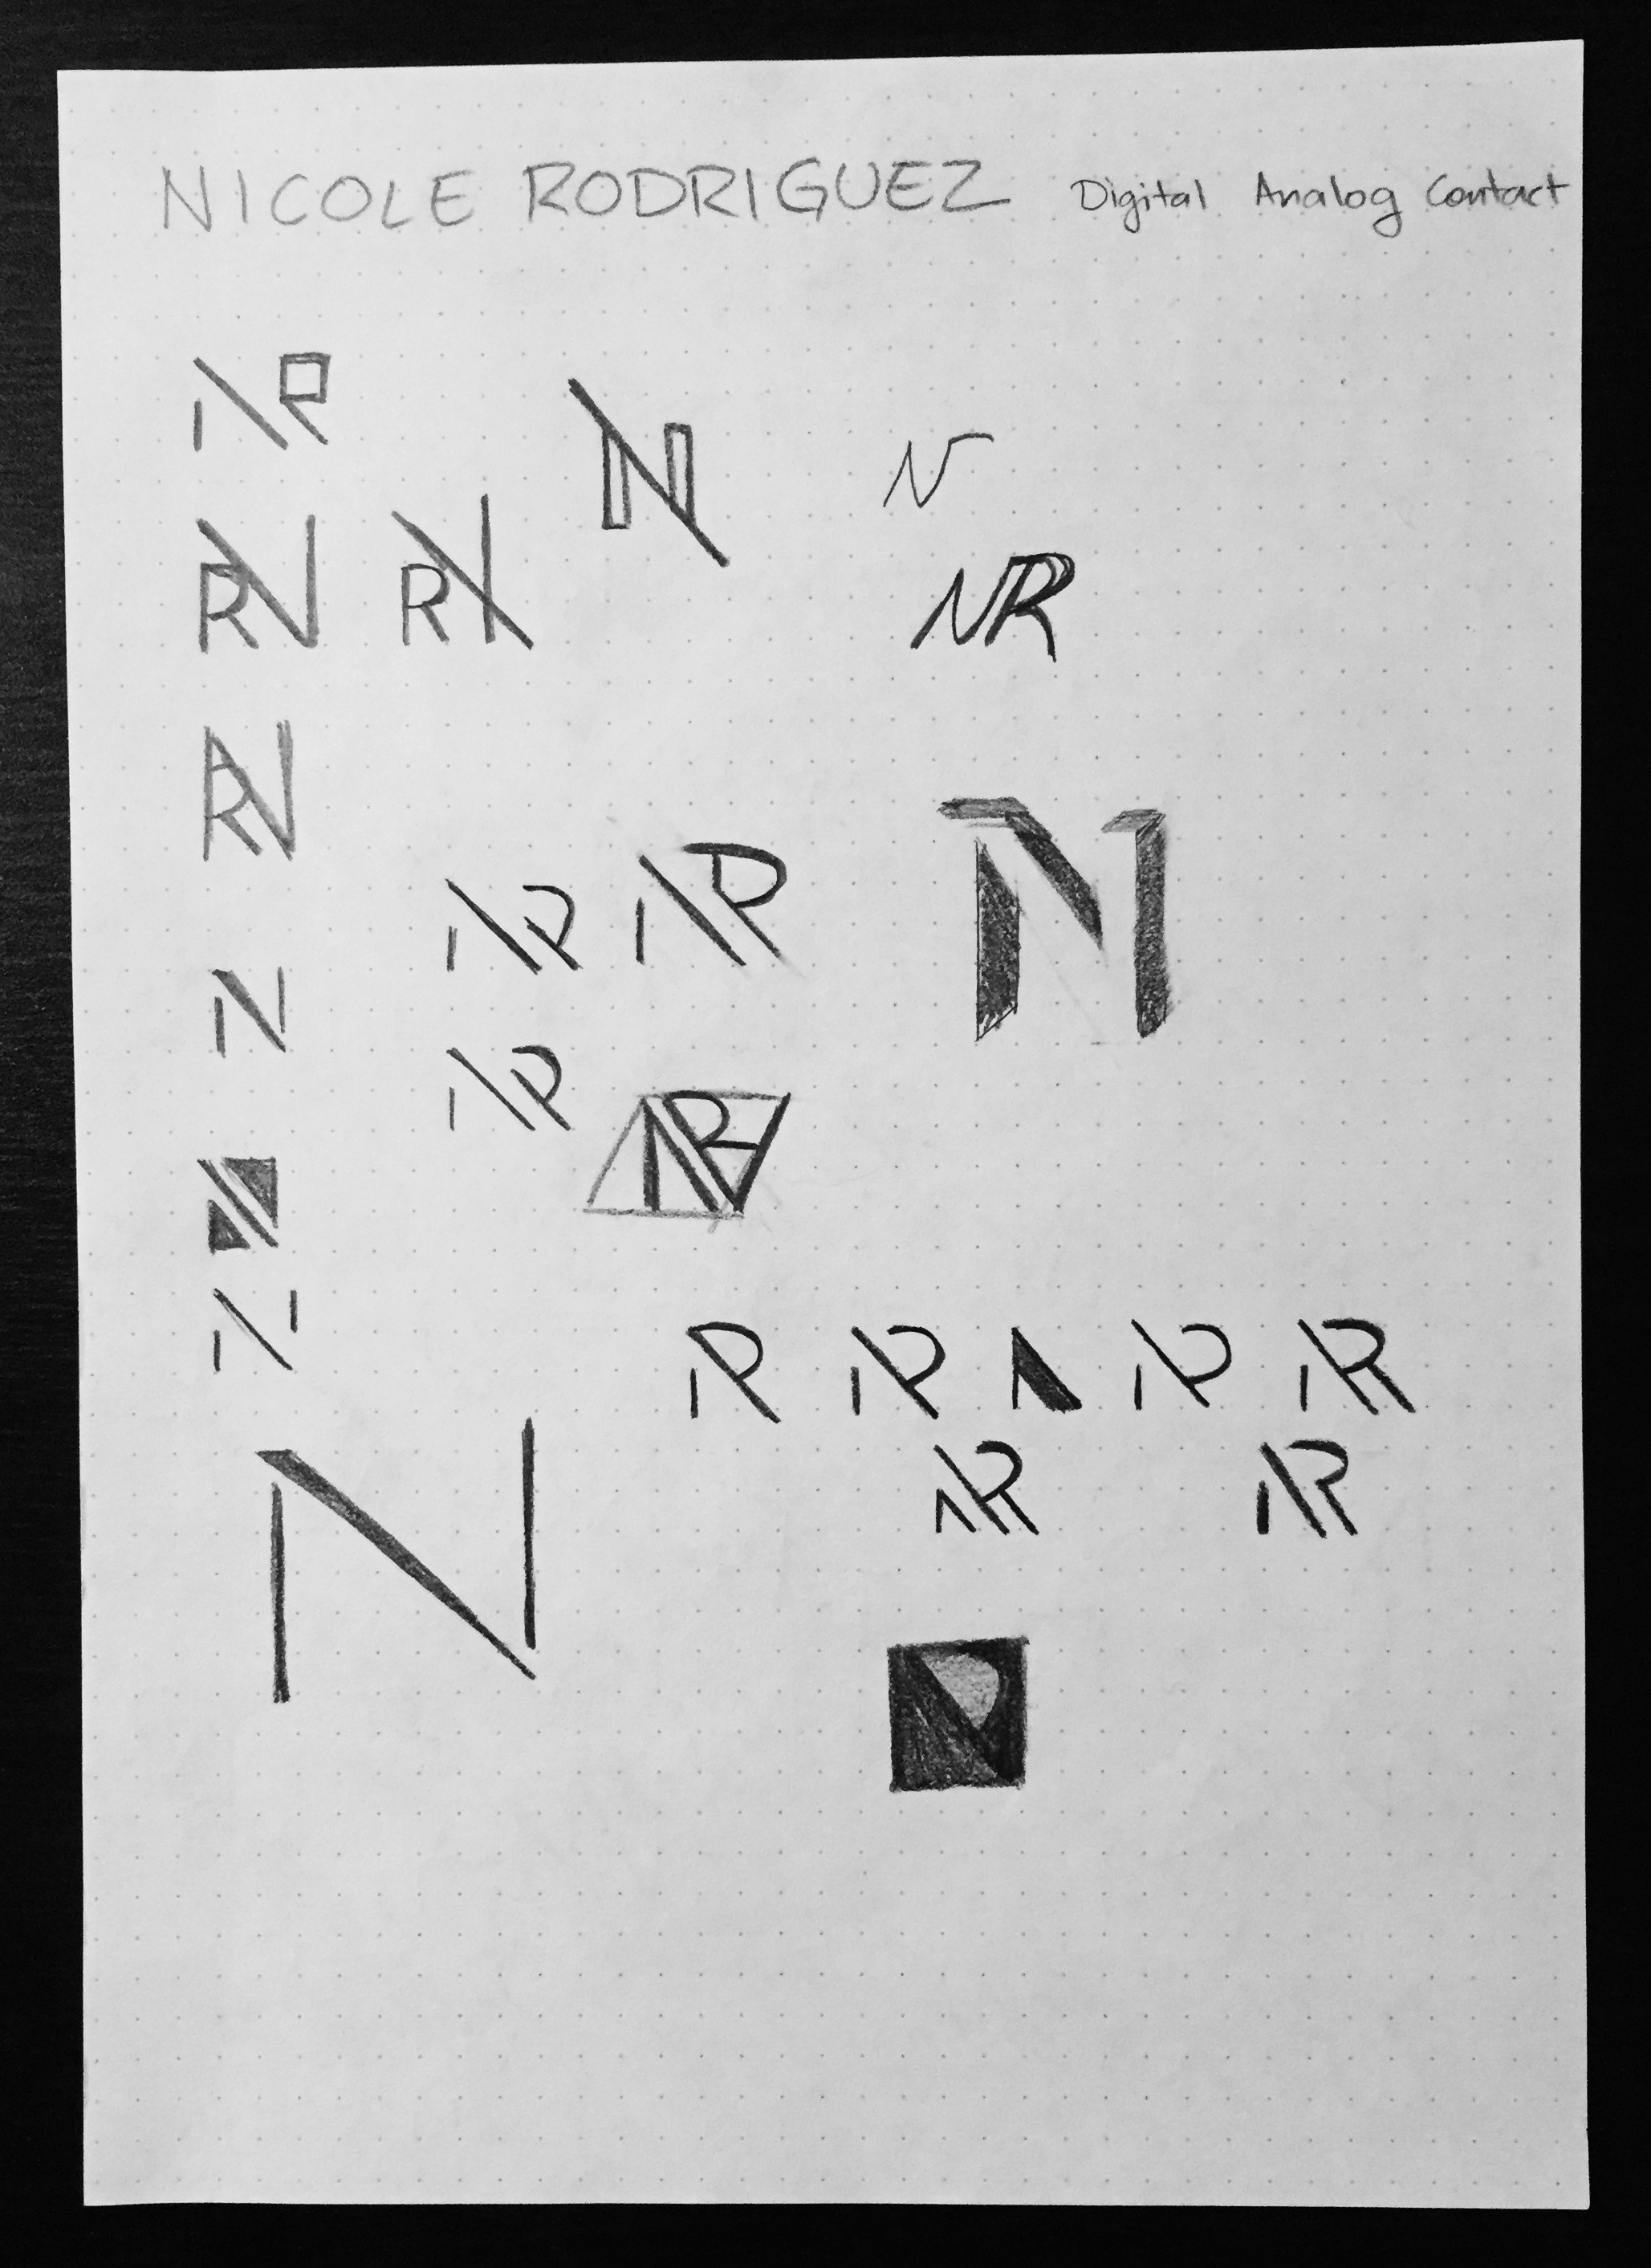 NICOLE RODRIGUEZ Digital Analog Contact
NR
N
N
RN RN
NR
RN
NR NR
N
N
NR
NR
N
N
NR NR N NR NR
N
NR NR
NR